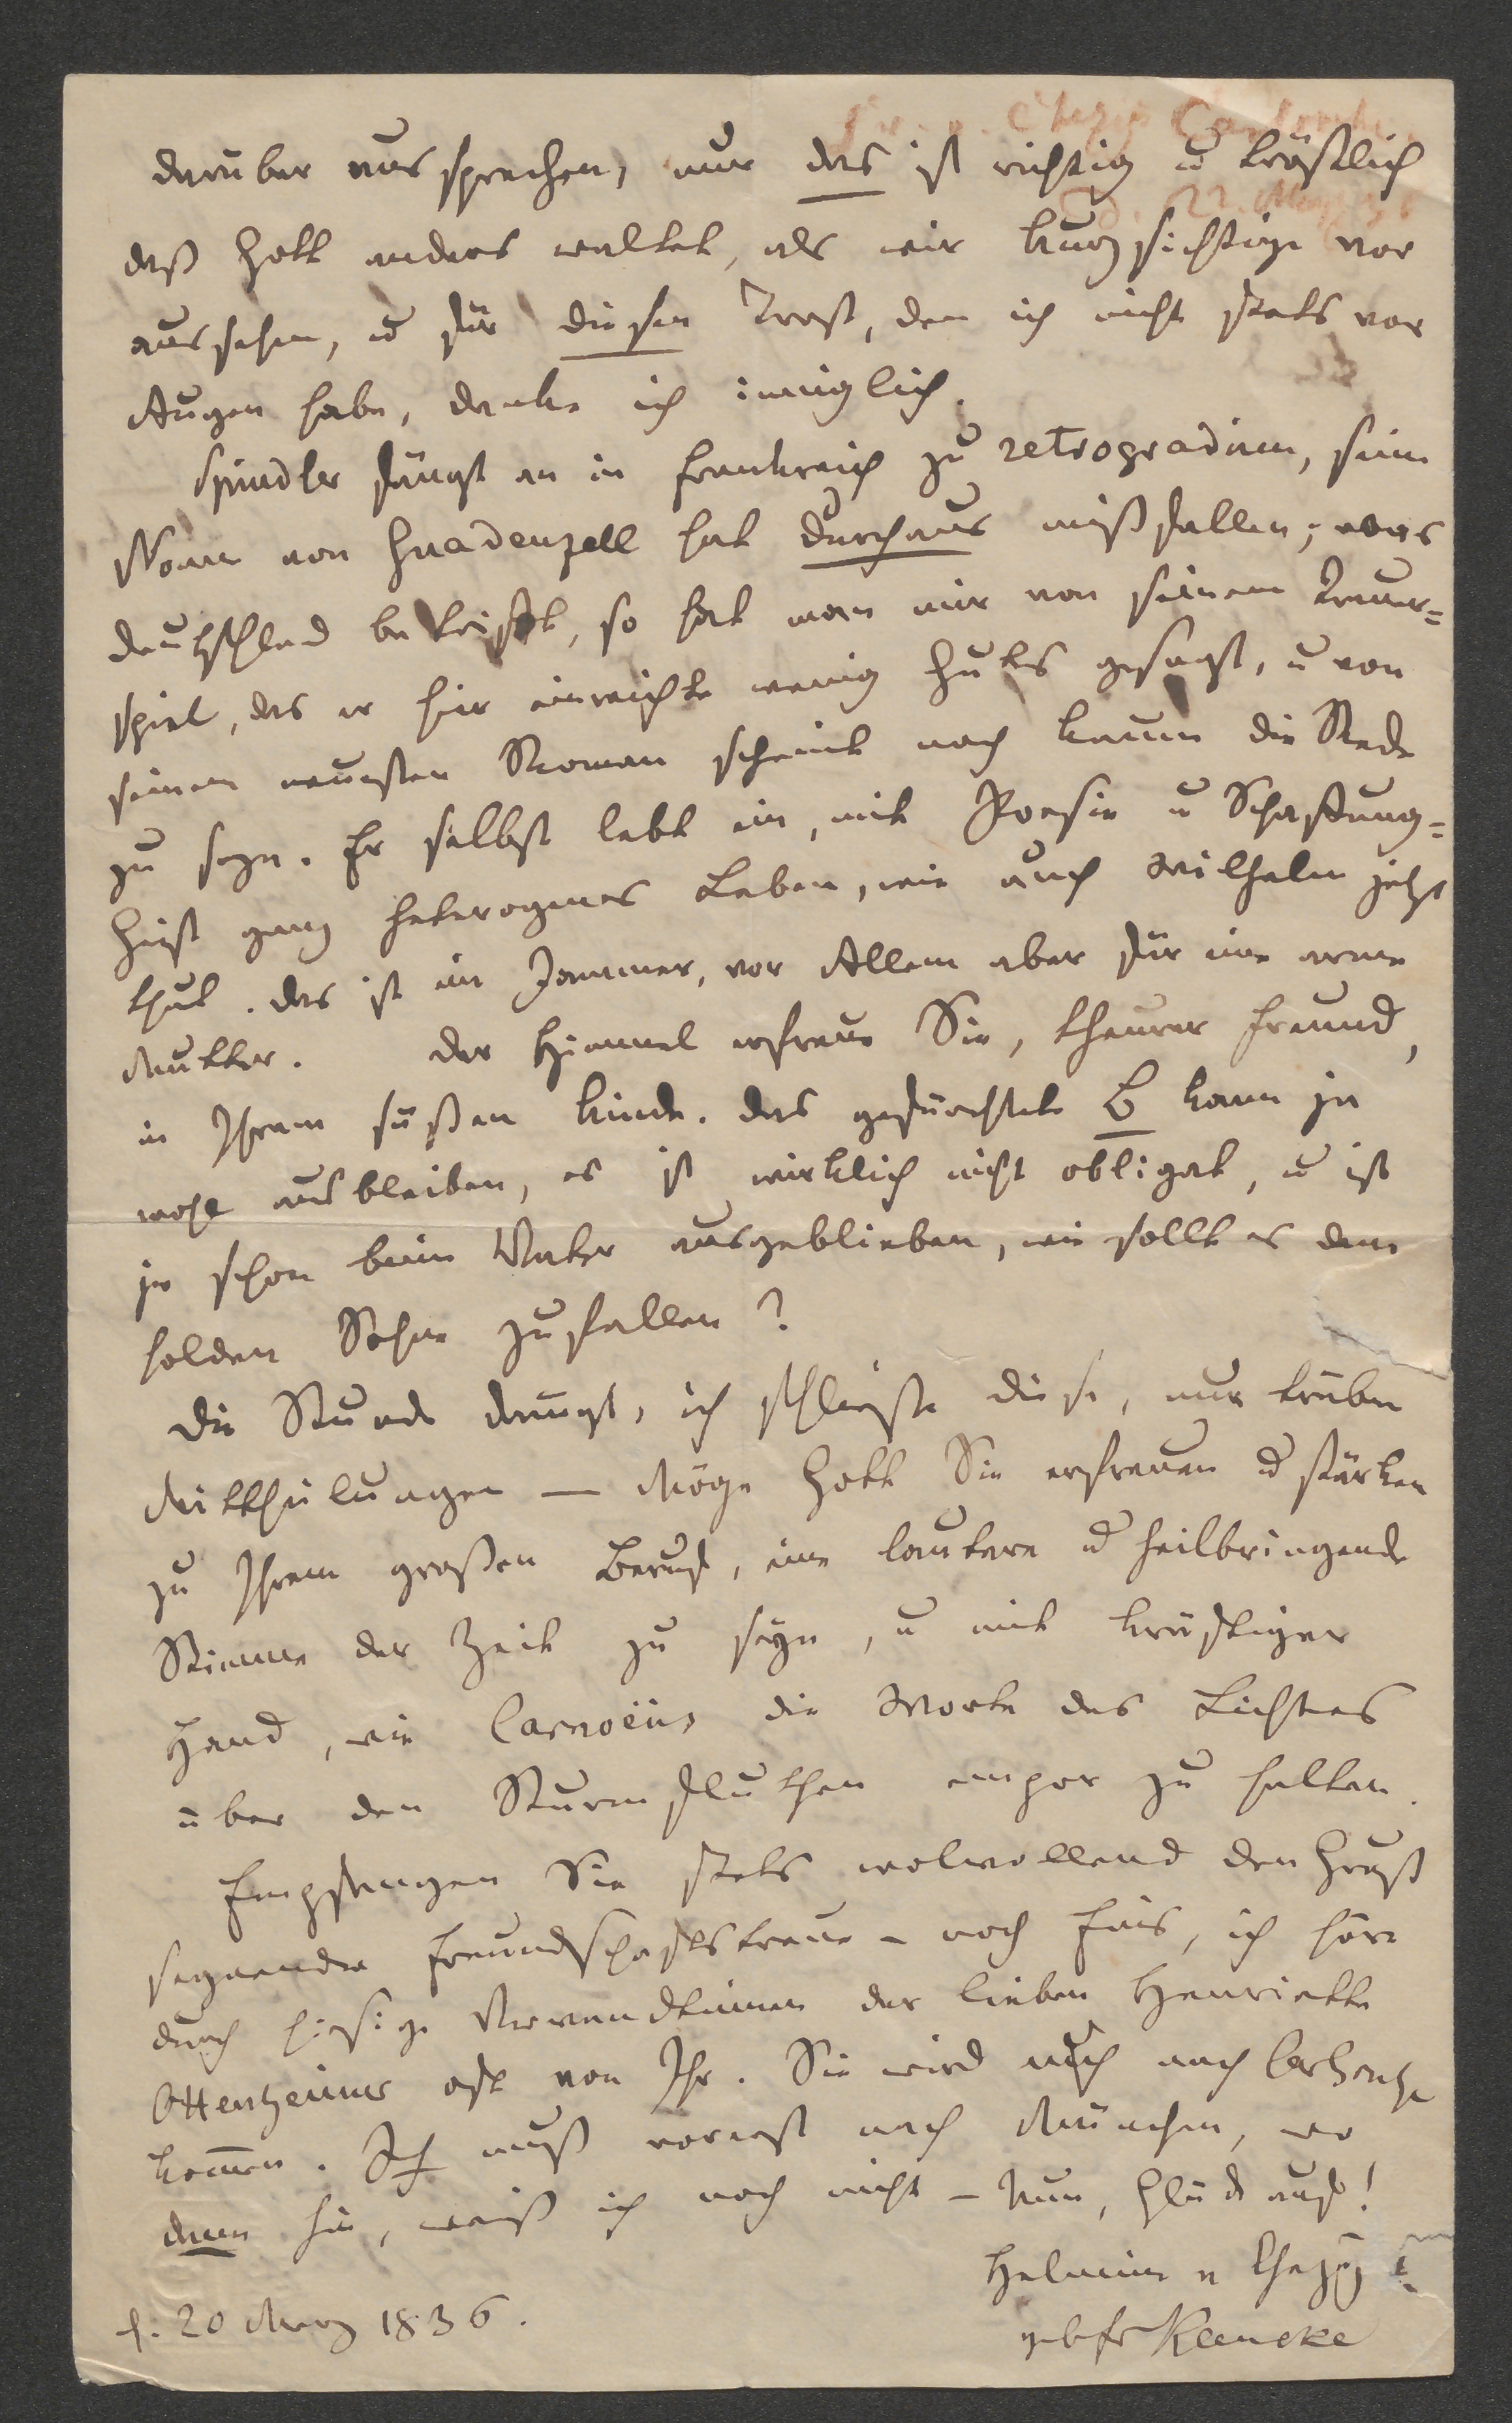 Chezy Carlsruhe
22. März 36
darüber aussprechen, nur das ist richtig u tröstlich
daß Gott anders waltet, als wir kurzsichtige vor
aussehen, u für diesen Trost, den ich nicht stets vor
Augen habe, danke ich inniglich.
Spindler fängt an in Frankreich zu retrogradiren, seine
Nonne von Gnadenzell hat durchaus mißfallen; was
Deutschland betrifft, so hat man mir von seinem Trauer=
spiel, das er hier einreichte wenig Gutes gesagt, u von
seinem neuesten Roman scheint noch kaum die Rede
zu seyn. Er selbst lebt ein, mit Poesie u Schaffung=
Geist ganz heterogenes Leben, wie auch Wilhelm jetzt
thut. Das ist ein Jammer, vor Allem aber für eine arme
Mutter. Der Himmel erfreue Sie, theurer Freund,
in Ihrem süßen Kinde. Das gefürchtete B kann ja
wohl ausbleiben, es ist wirklich nicht obligat, u ist
ja schon beim Vater ausgeblieben, wie sollt es dem
holden Sohne zufallen?
Die Stunde drängt, ich schließe diese, nur trüben
Mittheilungen — Möge Gott Sie erfreuen u stärken
zu Ihrem großen Beruf, eine lautere u heilbringende
Stimme der Zeit zu seyn, u mit kräftiger
Hand, wie Camoëns die Worte des Lichtes
über den Sturmfluthen empor zu halten.
Empfangen Sie stets wolwollend den Gruß
segnender Freundschaftstreue – noch Eins, ich höre
durch hiesige Verwandtinnen der lieben Henriette
Ottenheimer oft von Ihr. Sie wird auch nach Carlsruhe
kommen. Ich muß vorerst nach München, wo
dann hin, weiß ich noch nicht – Nun, Glück auf!
Helmina v Chezy
geb fr Klencke
d: 20 März 1836.